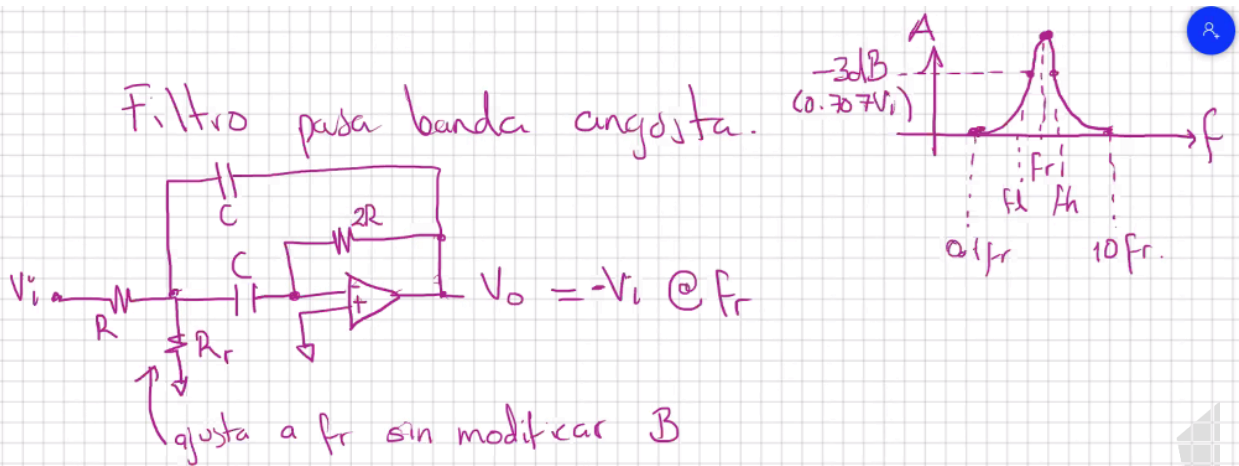 Filtro pasa banda angosta.
A
-3dB
(0.707Vi)
f
fr
fl fh
0.1fr 10fr.
C
2R
C
Vi
R
Rr
+
Vo = -Vi @ fr
ajusta a fr sin modificar B